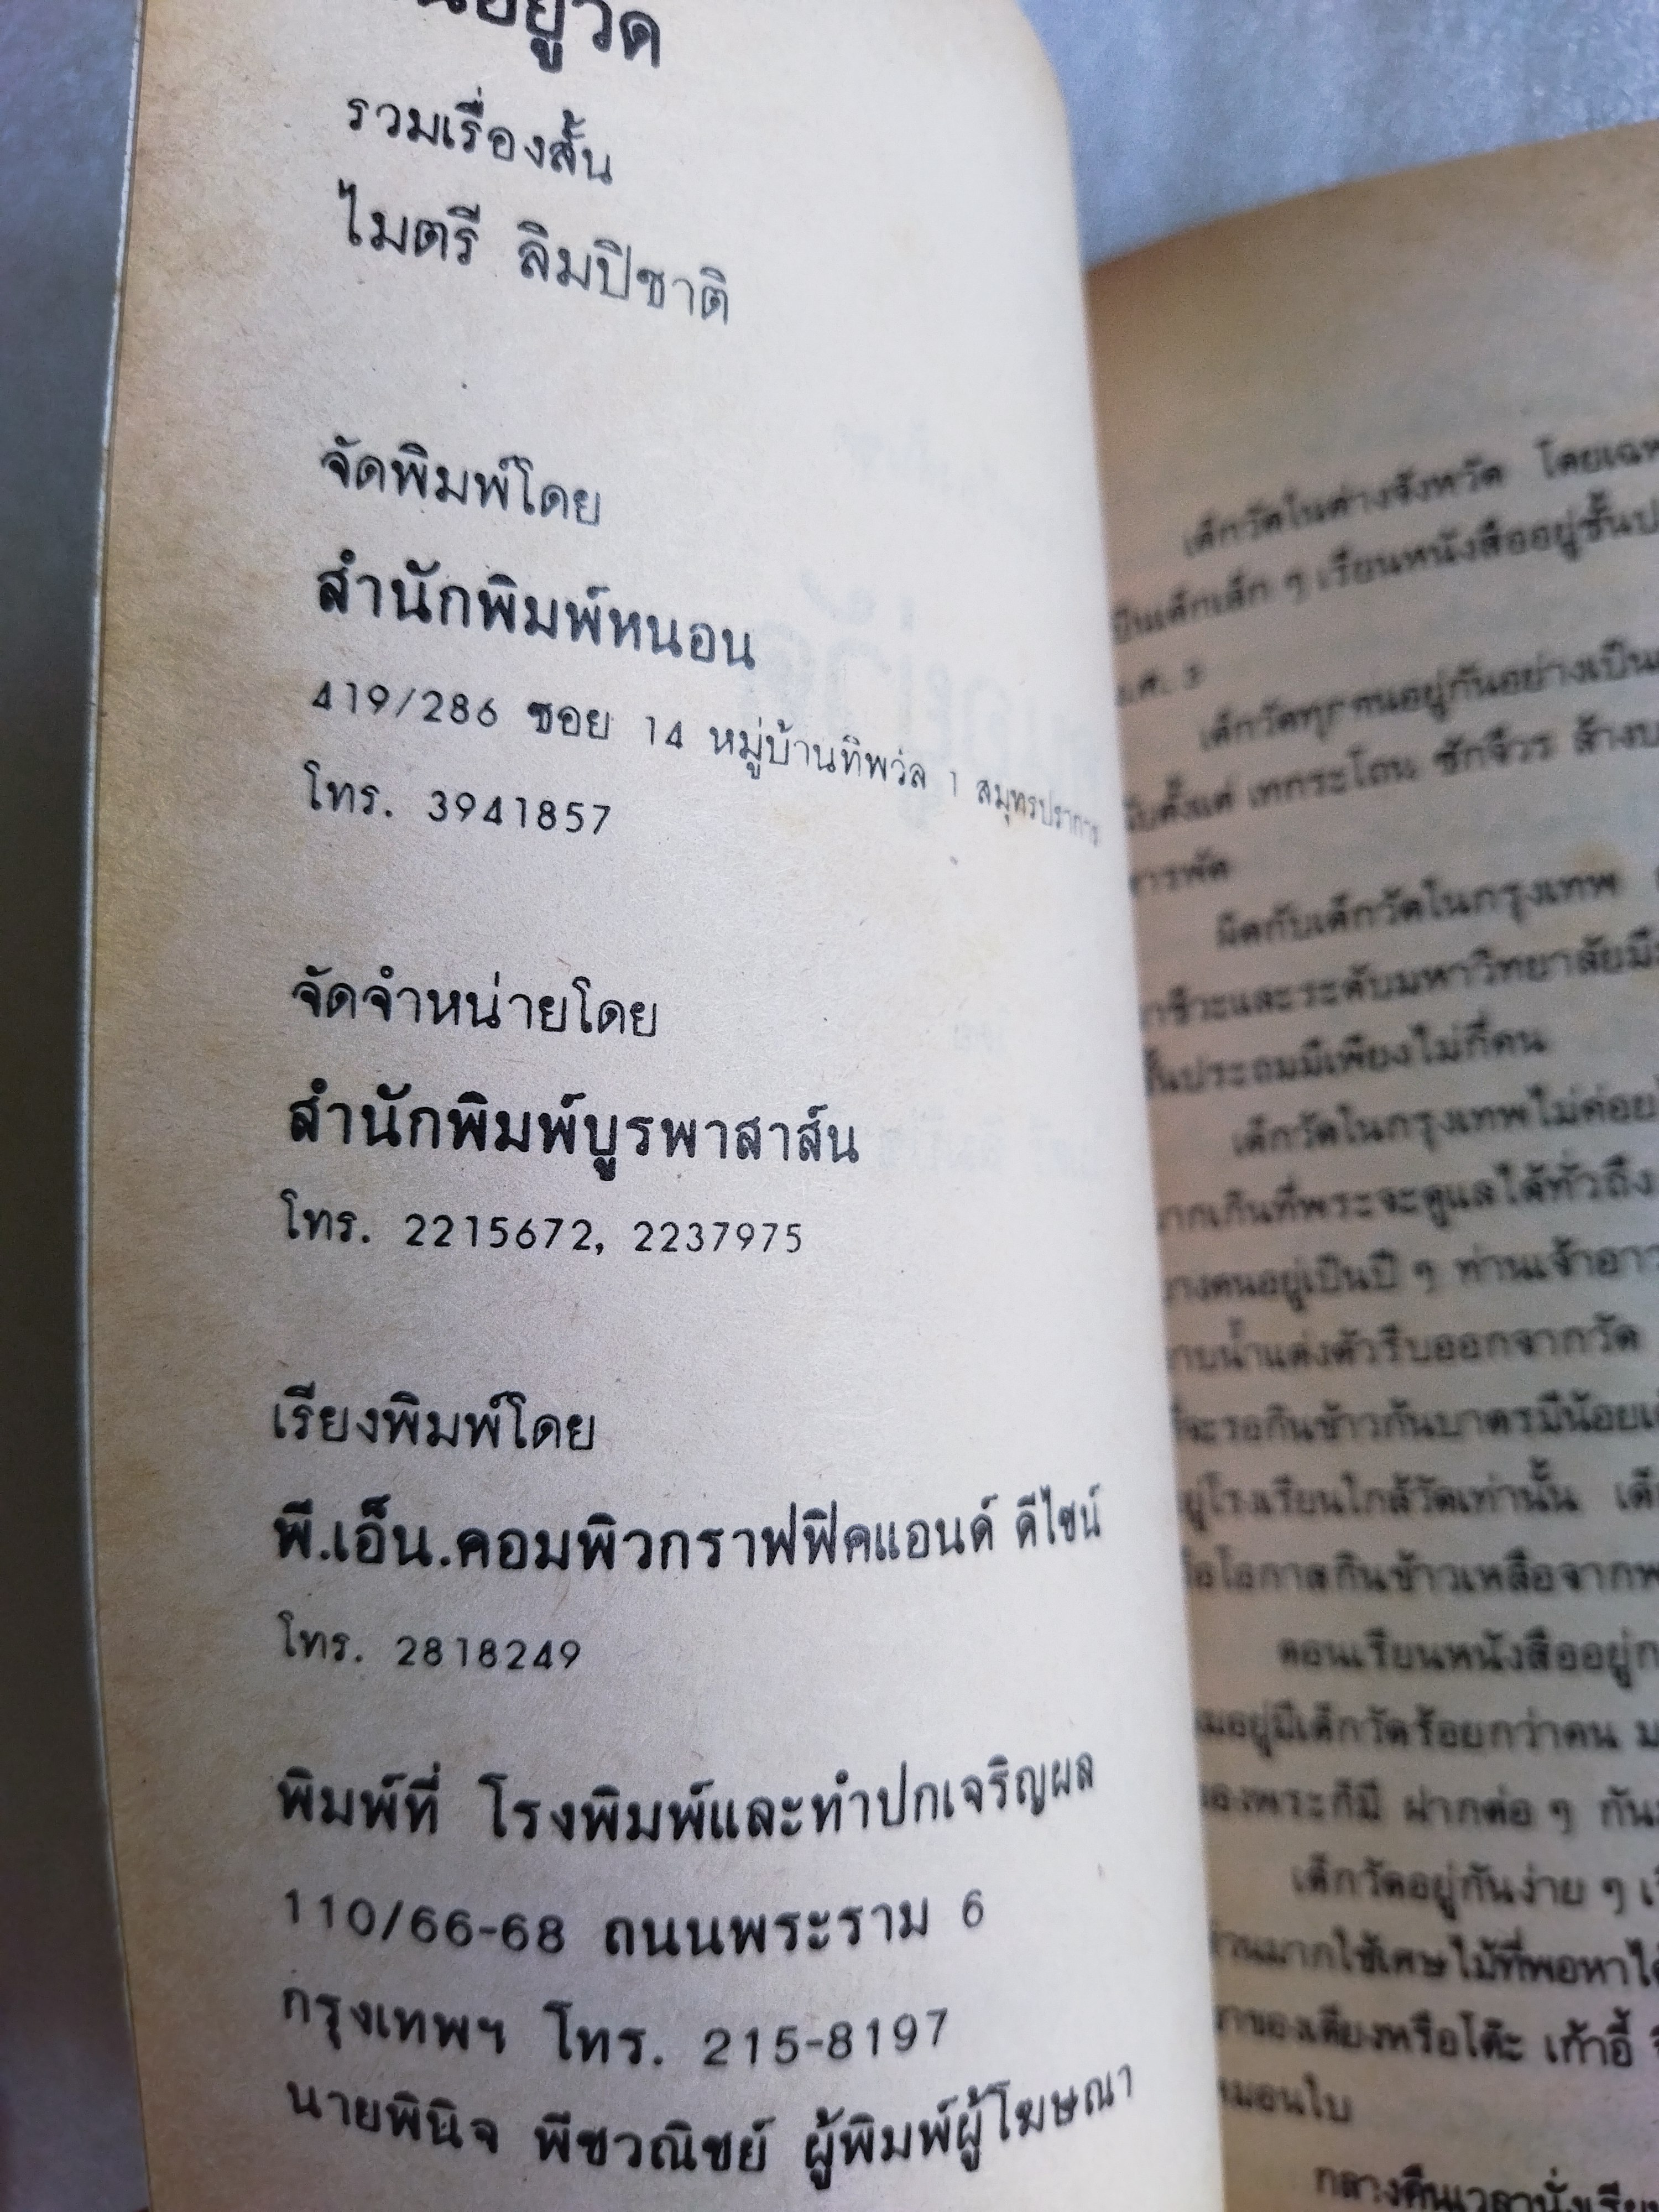 อยู่วัด
รวมเรื่องสั้น
ไมตรี ลิมปิชาติ
จัดพิมพ์โดย
สำนักพิมพ์หนอน
419/286 ซอย 14 หมู่บ้านทิพวัล 1 สมุทรปราการ
โทร. 3941857
จัดจำหน่ายโดย
สำนักพิมพ์บูรพาสาส์น
โทร. 2215672, 2237975
เรียงพิมพ์โดย
พี.เอ็น.คอมพิวกราฟฟิคแอนด์ ดีไซน์
โทร. 2818249
พิมพ์ที่ โรงพิมพ์และทำปกเจริญผล
110/66-68 ถนนพระราม 6
กรุงเทพฯ โทร. 215-8197
นายพินิจ พีชวณิชย์ ผู้พิมพ์ผู้โฆษณา
เด็กวัดในต่างจังหวัด
เป็นเด็กเล็ก ๆ เรียนหนังสืออยู่ชั้น
เด็กวัดทุกคนอยู่กันอย่าง
ตั้งแต่ เทกระโถน ซักจีวร ล้าง
สารพัด
ผิดกับเด็กวัดในกรุงเทพ
และระดับมหาวิทยาลัย
ชั้นประถมมีเพียงไม่กี่คน
เด็กวัดในกรุงเทพไม่ค่อย
มากเกินที่พระจะดูแลได้ทั่วถึง
บางคนอยู่เป็นปี ๆ ท่านเจ้า
อาบน้ำแต่งตัวรีบออกจากวัด
ที่จะรอกินข้าวก้นบาตรมีน้อย
อยู่โรงเรียนใกล้วัดเท่านั้น
โอกาสกินข้าวเหลือจาก
ตอนเรียนหนังสืออยู่
อยู่มีเด็กวัดร้อยกว่าคน
ของพระก็มี ฝากต่อ ๆ กัน
เด็กวัดอยู่กันง่าย ๆ
ส่วนมากใช้เศษไม้ที่พอหา
ขาของเตียงหรือโต๊ะ เก้าอี้
หมอนใบ
กลางคืนเวลานั่งเรียน